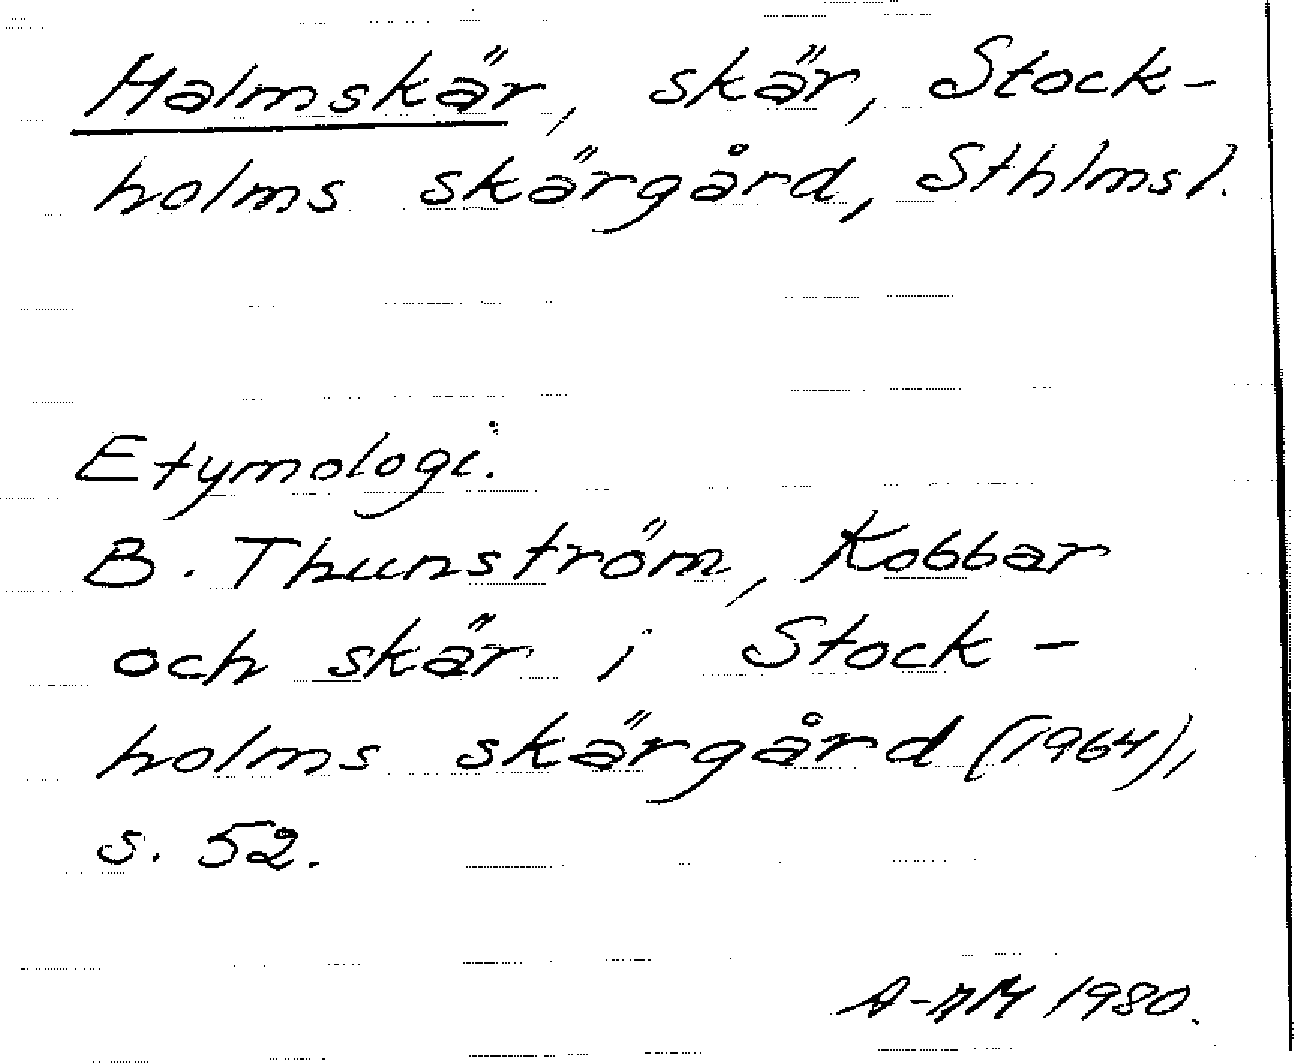 Halmskär, skär, Stock-
holms skärgård, Sthlms l.
Etymologi.
B. Thunström, Kobbar
och skär i Stock-
holms skärgård (1964),
s. 52.
A-MM 1980.